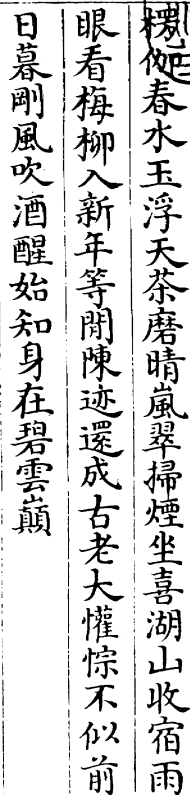 楞伽春水玉浮天茶磨晴嵐翠掃煙坐喜湖山收宿雨
眼看梅柳入新年等閒陳迹還成古老大懽悰不似前
日暮剛風吹酒醒始知身在碧雲巔